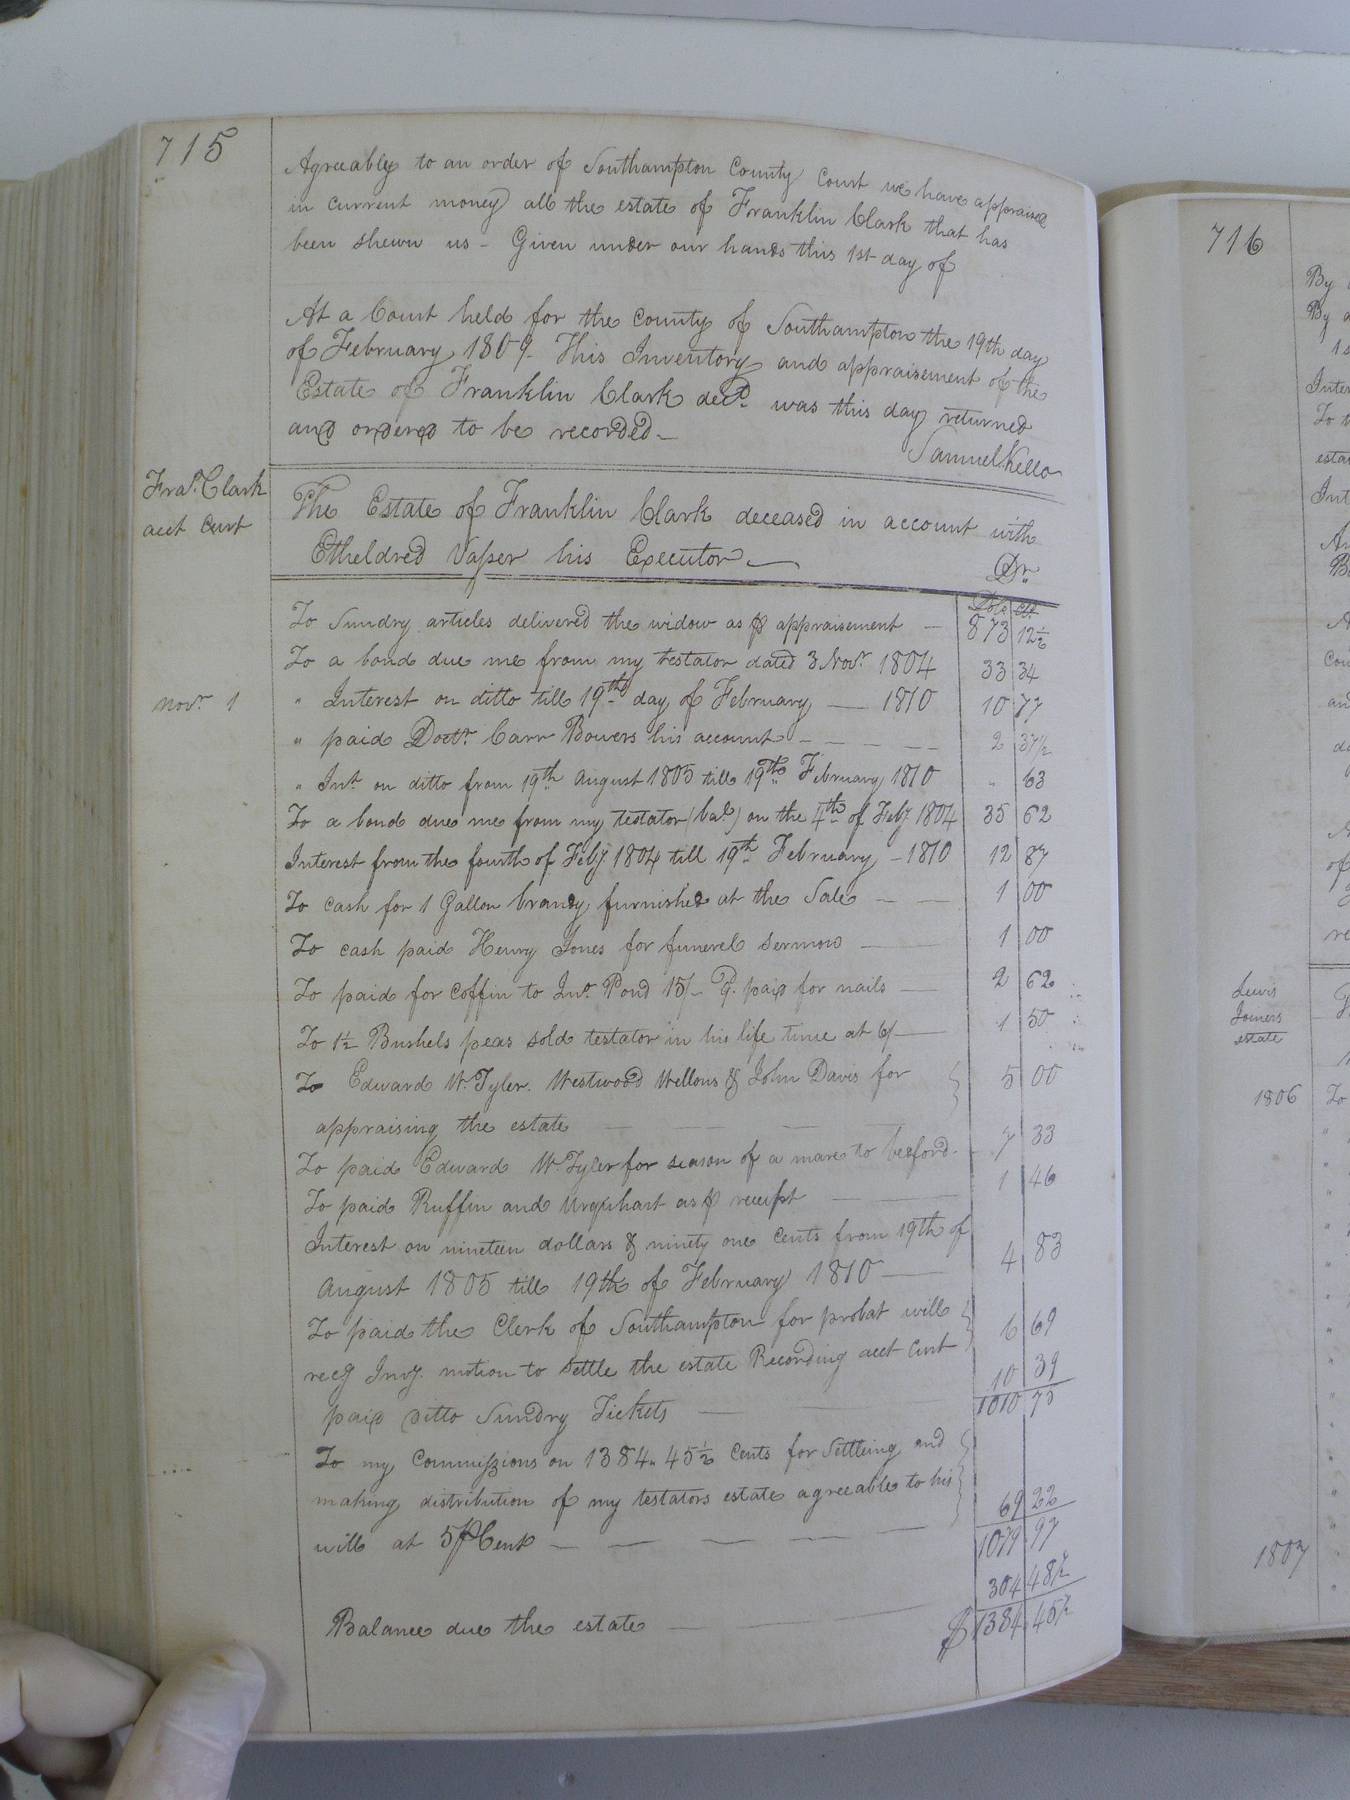 715
Agreeably to an order of Southampton County Court we have appraised
in current money all the estate of Franklin Clark that has
been shewn us - Given under our hands this 1st day of
At a Court held for the County of Southampton the 19th day
of February 1809. This Inventory and appraisement of the
Estate of Franklin Clark decd. was this day returned
and ordered to be recorded_
Samuel Kello
Fra. Clark
acct Curt
The Estate of Franklin Clark deceased in account with
Etheldred Vasser his Executor
Dr.
Dols Ct.
To Sundry articles delivered the widow as ⅌ appraisement — 873 12½
To a bond due me from my testator dated 3 Novr. 1804 33 34
novr. 1
" Interest on ditto till 19th day of February — 1810 10 77
" paid Doctr. Carr Bowers his account - - - - - 2 37½
" Int. on ditto from 19th August 1805 till 19th February 1810 " 63
To a bond due me from my testator (bal.) on the 4th of Feby 1804 35 62
Interest from the fourth of Feby 1804 till 19th February - 1810 12 87
To cash for 1 Gallon brandy furnished at the Sale — — 1 00
To cash paid Henry Jones for funerel sermon — 1 00
To paid for coffin to Jno. Pond 15/- P. paid for nails — 2 62
To 1½ Bushels peas sold testator in his life time at 6/ — 1 50
To Edward W. Tyler. Westwood Wellons & John Davis for 5 00
appraising the estate — — — —
To paid Edward W. Tyler for season of a mare to bedford - 7 33
To paid Ruffin and Urquhart as ⅌ receipt — — 1 46
Interest on nineteen dollars & ninety one cents from 19th of
August 1805 till 19th of February 1810 — 4 83
To paid the Clerk of Southampton for probat will
recg Invy. motion to settle the estate Recording acct Curt 6 69
paid ditto Sundry Tickets — — 10 39
1010 75
To my Commissions on 1384. 45½ Cents for Settleing and
making distribution of my testators estate agreeable to his
will at 5 ⅌ Cent — — — — — 69 22
1079 97
304 48½
Balance due the estate — — — $ 1384 45½
716
By
By
Inter
To
esta
Int
Lewis
Joiners
estate
1806 To
1807